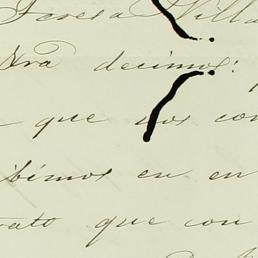 Teresa Villa
tra decimos:
que nos con
bimos en en
rato que con